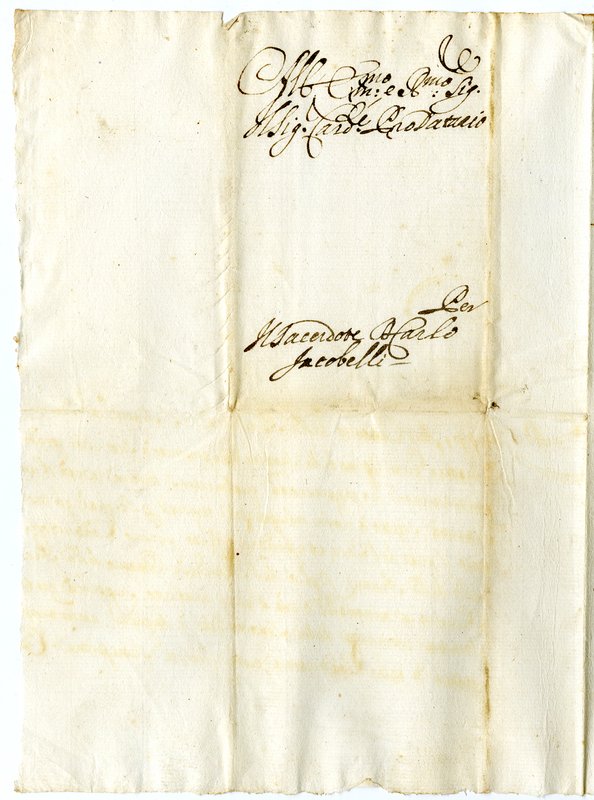 All' Em.mo e R.mo Sig.
Il Sig. Card.le ProDatario
Per
Il Sacerdote Carlo
Jacobelli